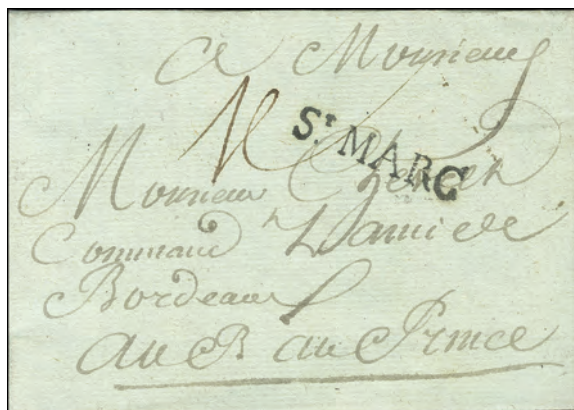 A Monsieur
St. MARC
Monsieur
Command L'ami de
Bordeaux
au P. au Prince